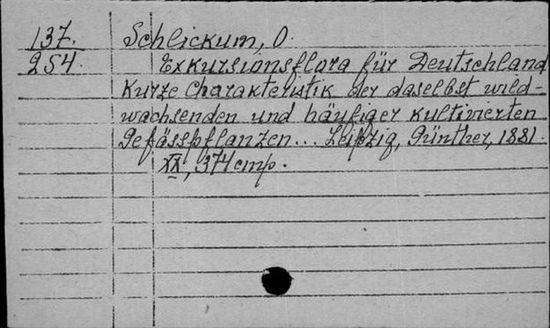 137. Schlickum, O.
254. Exkursionsflora für Deutschland
Kurze Charakteristik der daselbst wild-
wachsenden und häufiger kultivierten
Gefässpflanzen... Leipzig, Günther, 1881.
XX, 374 cmp.